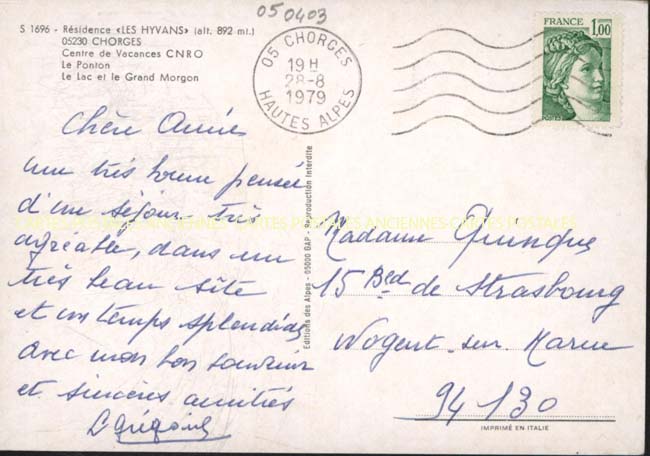 050403
S 1696 - Résidence «LES HYVANS» (alt. 892 mt.)
05230 CHORGES
Centre de Vacances CNRO
Le Ponton
Le Lac et le Grand Morgon
05 CHORGES
19 H
28-8
1979
HAUTES ALPES
FRANCE
1,00
Chère Année
une très bonne pensée
d'un séjour très
agréable, dans un
très beau site
et un temps splendide,
avec mon bon souvenir
et sincères amitiés
Editions des Alpes - 05000 GAP - Reproduction Interdite
CARTES POSTALES ANCIENNES-CARTES POSTALES
Madame Quinque
15 Bed de Strasbourg
Nogent-sur-Marne
94130
IMPRIMÉ EN ITALIE